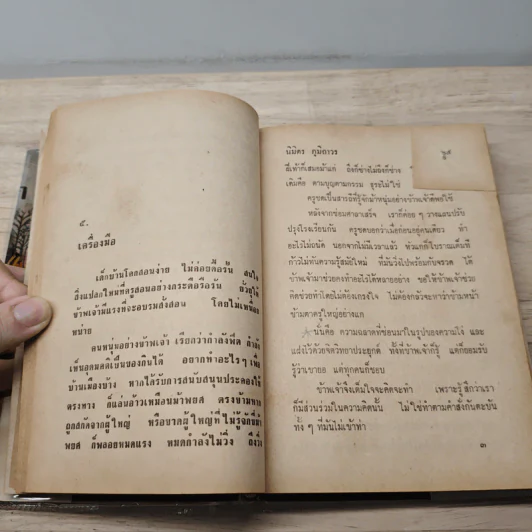 ๕.
เครื่องมือ
เด็กบ้านโคกสอนง่าย ไม่ค่อยดื้อรั้น สนใจ
สิ่งแปลกใหม่ที่ครูสอนอย่างกระตือรือร้น
ข้าพเจ้ามีแรงที่จะอบรมสั่งสอน โดยไม่เหนื่อย
หน่าย
คนหนุ่มอย่างข้าพเจ้า เรียกว่ากำลังฟิต
เห็นอุดมคติเป็นของกินได้ อยากทำอะไรๆ เพื่อ
บ้านเมืองบ้าง หากได้รับการสนับสนุนประคองให้
ตรงทาง ก็แล่นอ้าวเหมือนม้าพยศ ตรงข้ามหาก
ถูกสกัดจากผู้ใหญ่ หรือขาดผู้ใหญ่ที่ไม่รู้จักขี่ม้า
พยศ ก็พลอยหมดแรง หมดกำลังใจไม่วิ่ง ถึงวิ่ง
นิมิตร ภูมิถาวร
สี่เท้าก็เสมอม้าแก่ ถึงก็ช่างไม่ถึงก็ช่าง
เต้มคือ ตามบุญตามกรรม ธุระไม่ใช่
ครูชดเป็นสารถีที่รู้จักม้าหนุ่มอย่างข้าพเจ้าดีพอใช้
หลังจากซ่อมศาลาเสร็จ เราก็ค่อยๆ วางแผนปรับ
ปรุงโรงเรียนกัน ครูชดบอกว่าเมื่อก่อนอยู่คนเดียว ทำ
อะไรไม่ถนัด นอกจากไม่มีเวลาแล้ว หัวแก่ที่โบราณเต็มที
ก้าวไม่ทันความรู้สมัยใหม่ ที่มันวิ่งไปพร้อมกับจรวด ได้
ข้าพเจ้ามาช่วยคงทำอะไรได้หลายอย่าง ขอให้ข้าพเจ้าช่วย
คิดช่วยทำโดยไม่ต้องเกรงใจ ไม่ต้องกลัวจะหาว่าข้ามหน้า
ข้ามตาครูใหญ่อย่างแก
นั่นคือ ความฉลาดที่ซ่อนมาในรูปของความโง่ และ
แฝงไว้ด้วยจิตวิทยาประยุกต์ ทั้งที่ข้าพเจ้าก็รู้ แต่ก็ยอมรับ
รู้ว่าเขายอ แต่ทุกคนก็ชอบ
ข้าพเจ้าจึงเต็มใจจะคิดจะทำ เพราะรู้สึกว่าเรา
ก็มีส่วนร่วมในความคิดนั้น ไม่ใช่ทำตามคำสั่งกันตะบัน
ทั้ง ๆ ที่มันไม่เข้าท่า
๓